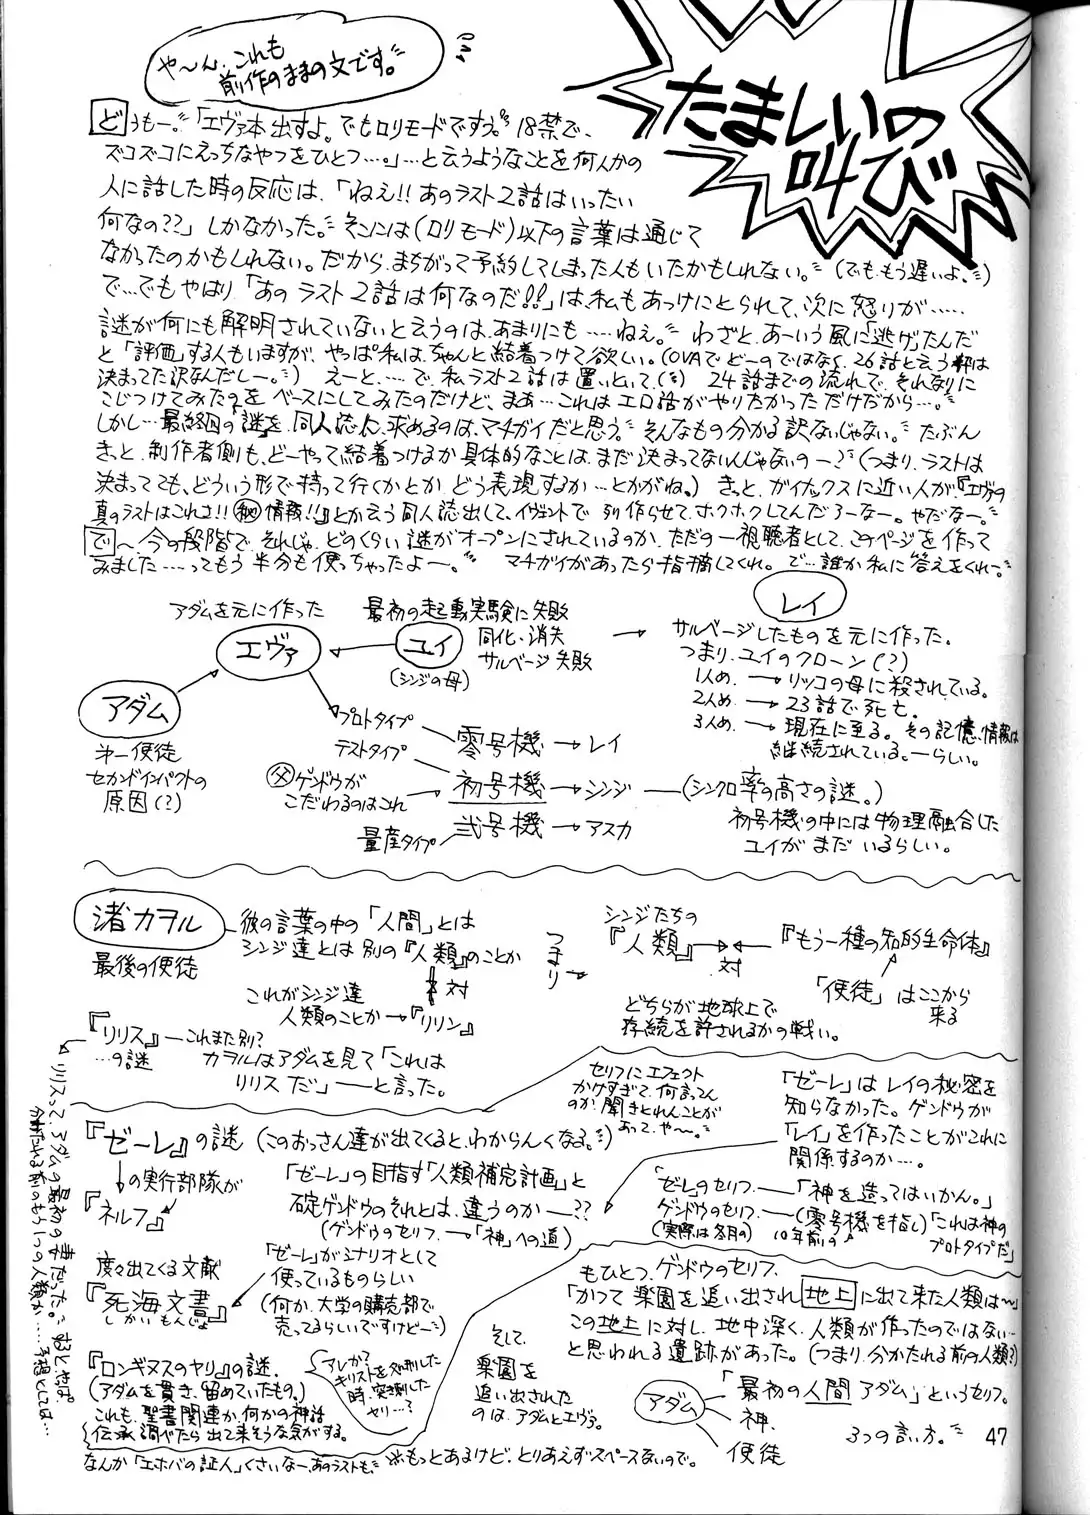 たましいの
叫び
や〜ん、これも
前作のままの文です。
どうもー。「エヴァ本出すよ。でもロリモードですぅ。18禁で、
ズコズコにえっちなやつをひとつ…。」…と云うようなことを何人かの
人に話した時の反応は、「ねえ!!あのラスト2話はいったい
何なの??」しかなかった。そこには(ロリモード)以下の言葉は通じて
なかったのかもしれない。だから、まちがって予約してしまった人もいたかもしれない。(でも、もう遅いよ、)
で…でもやはり「あのラスト2話は何なのだ!!」は、私もあっけにとられて、次に怒りが……
謎が何にも解明されていないと云うのは、あまりにも……ねぇ。わざと、あーいう風に「逃げ」たんだ
と「評価」する人もいますが、やっぱ私は、ちゃんと結着つけて欲しい。(OVAでどーのではなく、26話と云う枠は
決まってた訳なんだしー。) えーと、……で、私ラスト2話は置いといて、() 24話までの流れで、それなりに
こじつけてみたのをベースにしてみたのだけど、まあ…これはエロ話がやりたかっただけだから…。
しかし…最終回の「謎」を、同人誌に求めるのは、マチガイだと思う。そんなもの分かる訳ないじゃない。たぶん
きっと、制作者側も、どーやって結着つけるか具体的なことは、まだ決まってないんじゃないのー?(つまり、ラストは
決まってても、どういう形で持って行くかとか、どう表現するか…とかがね。) きっと、ガイナックスに近い人が、『エヴァの
真のラストはこれさ!!㊙情報!!』とか云う同人誌出して、イヴェントで列作らせて、ホクホクしてんだろーなー。やだなー。
で〜、今の段階で、それじゃ、どのくらい謎がオープンにされているのか、ただの一視聴者として、このページを作って
みました……ってもう半分も使っちゃったよー。 マチガイがあったら指摘してくれ。で…誰か私に答えをくれー。
アダムを元に作った
エヴァ
最初の起動実験に失敗
ユイ
同化、消失
サルベージ失敗
(シンジの母)
レイ
サルベージしたものを元に作った。
つまり、ユイのクローン(?)
1人め、→リツコの母に殺されている。
2人め、→23話で死亡。
3人め、→現在に至る。その記憶、情報は
継続されている。—らしい。
アダム
第一使徒
セカンドインパクトの
原因(?)
プロトタイプ
零号機→レイ
テストタイプ
父ゲンドウが
こだわるのはこれ
初号機→シンジ—(シンクロ率の高さの謎。)
量産タイプ
弐号機→アスカ
初号機の中には物理融合した
ユイがまだいるらしい。
渚カヲル
最後の使徒
彼の言葉の中の「人間」とは
シンジ達とは別の『人類』のことか
対
これがシンジ達
人類のことか→『リリン』
つまり
シンジたちの
『人類』
対
『もう一種の知的生命体』
「使徒」はここから
来る
どちらが地球上で
存続を許されるかの戦い。
『リリス』—これまた別?
…の謎
カヲルはアダムを見て「これは
リリスだ」—と言った。
リリスって、アダムの最初の妻だった。
『ゼーレ』の謎(このおっさん達が出てくると、わからんくなる。)
の実行部隊が
『ネルフ』
「ゼーレ」の目指す「人類補完計画」と
碇ゲンドウのそれとは、違うのか—??
(ゲンドウのセリフ、—「神」への道)
セリフにエフェクト
かけすぎて、何言ってん
のか、聞きとれんことが
あって、や〜。
「ゼーレ」はレイの秘密を
知らなかった。ゲンドウが
「レイ」を作ったことがこれに
関係するのか…。
「ゼーレ」のセリフ、—「神を造ってはいかん。」
ゲンドウのセリフ、—(零号機を指し)「これは神の
プロトタイプだ」
(実際は冬月の)
10年前の
度々出てくる文献
『死海文書』
しかいもんじょ
「ゼーレ」がシナリオとして
使っているものらしい
(何か、大学の購売部で
売ってるらしいですけどー)
『ロンギヌスのヤリ』の謎。
(アダムを貫き、留めていたもの。)
これも、聖書関連か、何かの神話
伝承調べたら出て来そうな気がする。
アレか?
キリストを処刑した
時、突き刺した
ヤリ…?
もひとつ、ゲンドウのセリフ、
「かつて楽園を追い出され地上に出て来た人類は〜」
この地上に対し、地中深く、人類が作ったのではない…
と思われる遺跡があった。(つまり、分かたれる前の人類?)
そして、
楽園を
追い出された
のは、アダムとエヴァ。
アダム
「最初の人間アダム」というセリフ。
神
使徒
3つの言い方。
なんか「エホバの証人」くさいなー、あのラストも、
※もっとあるけど、とりあえずスペースないので。
47